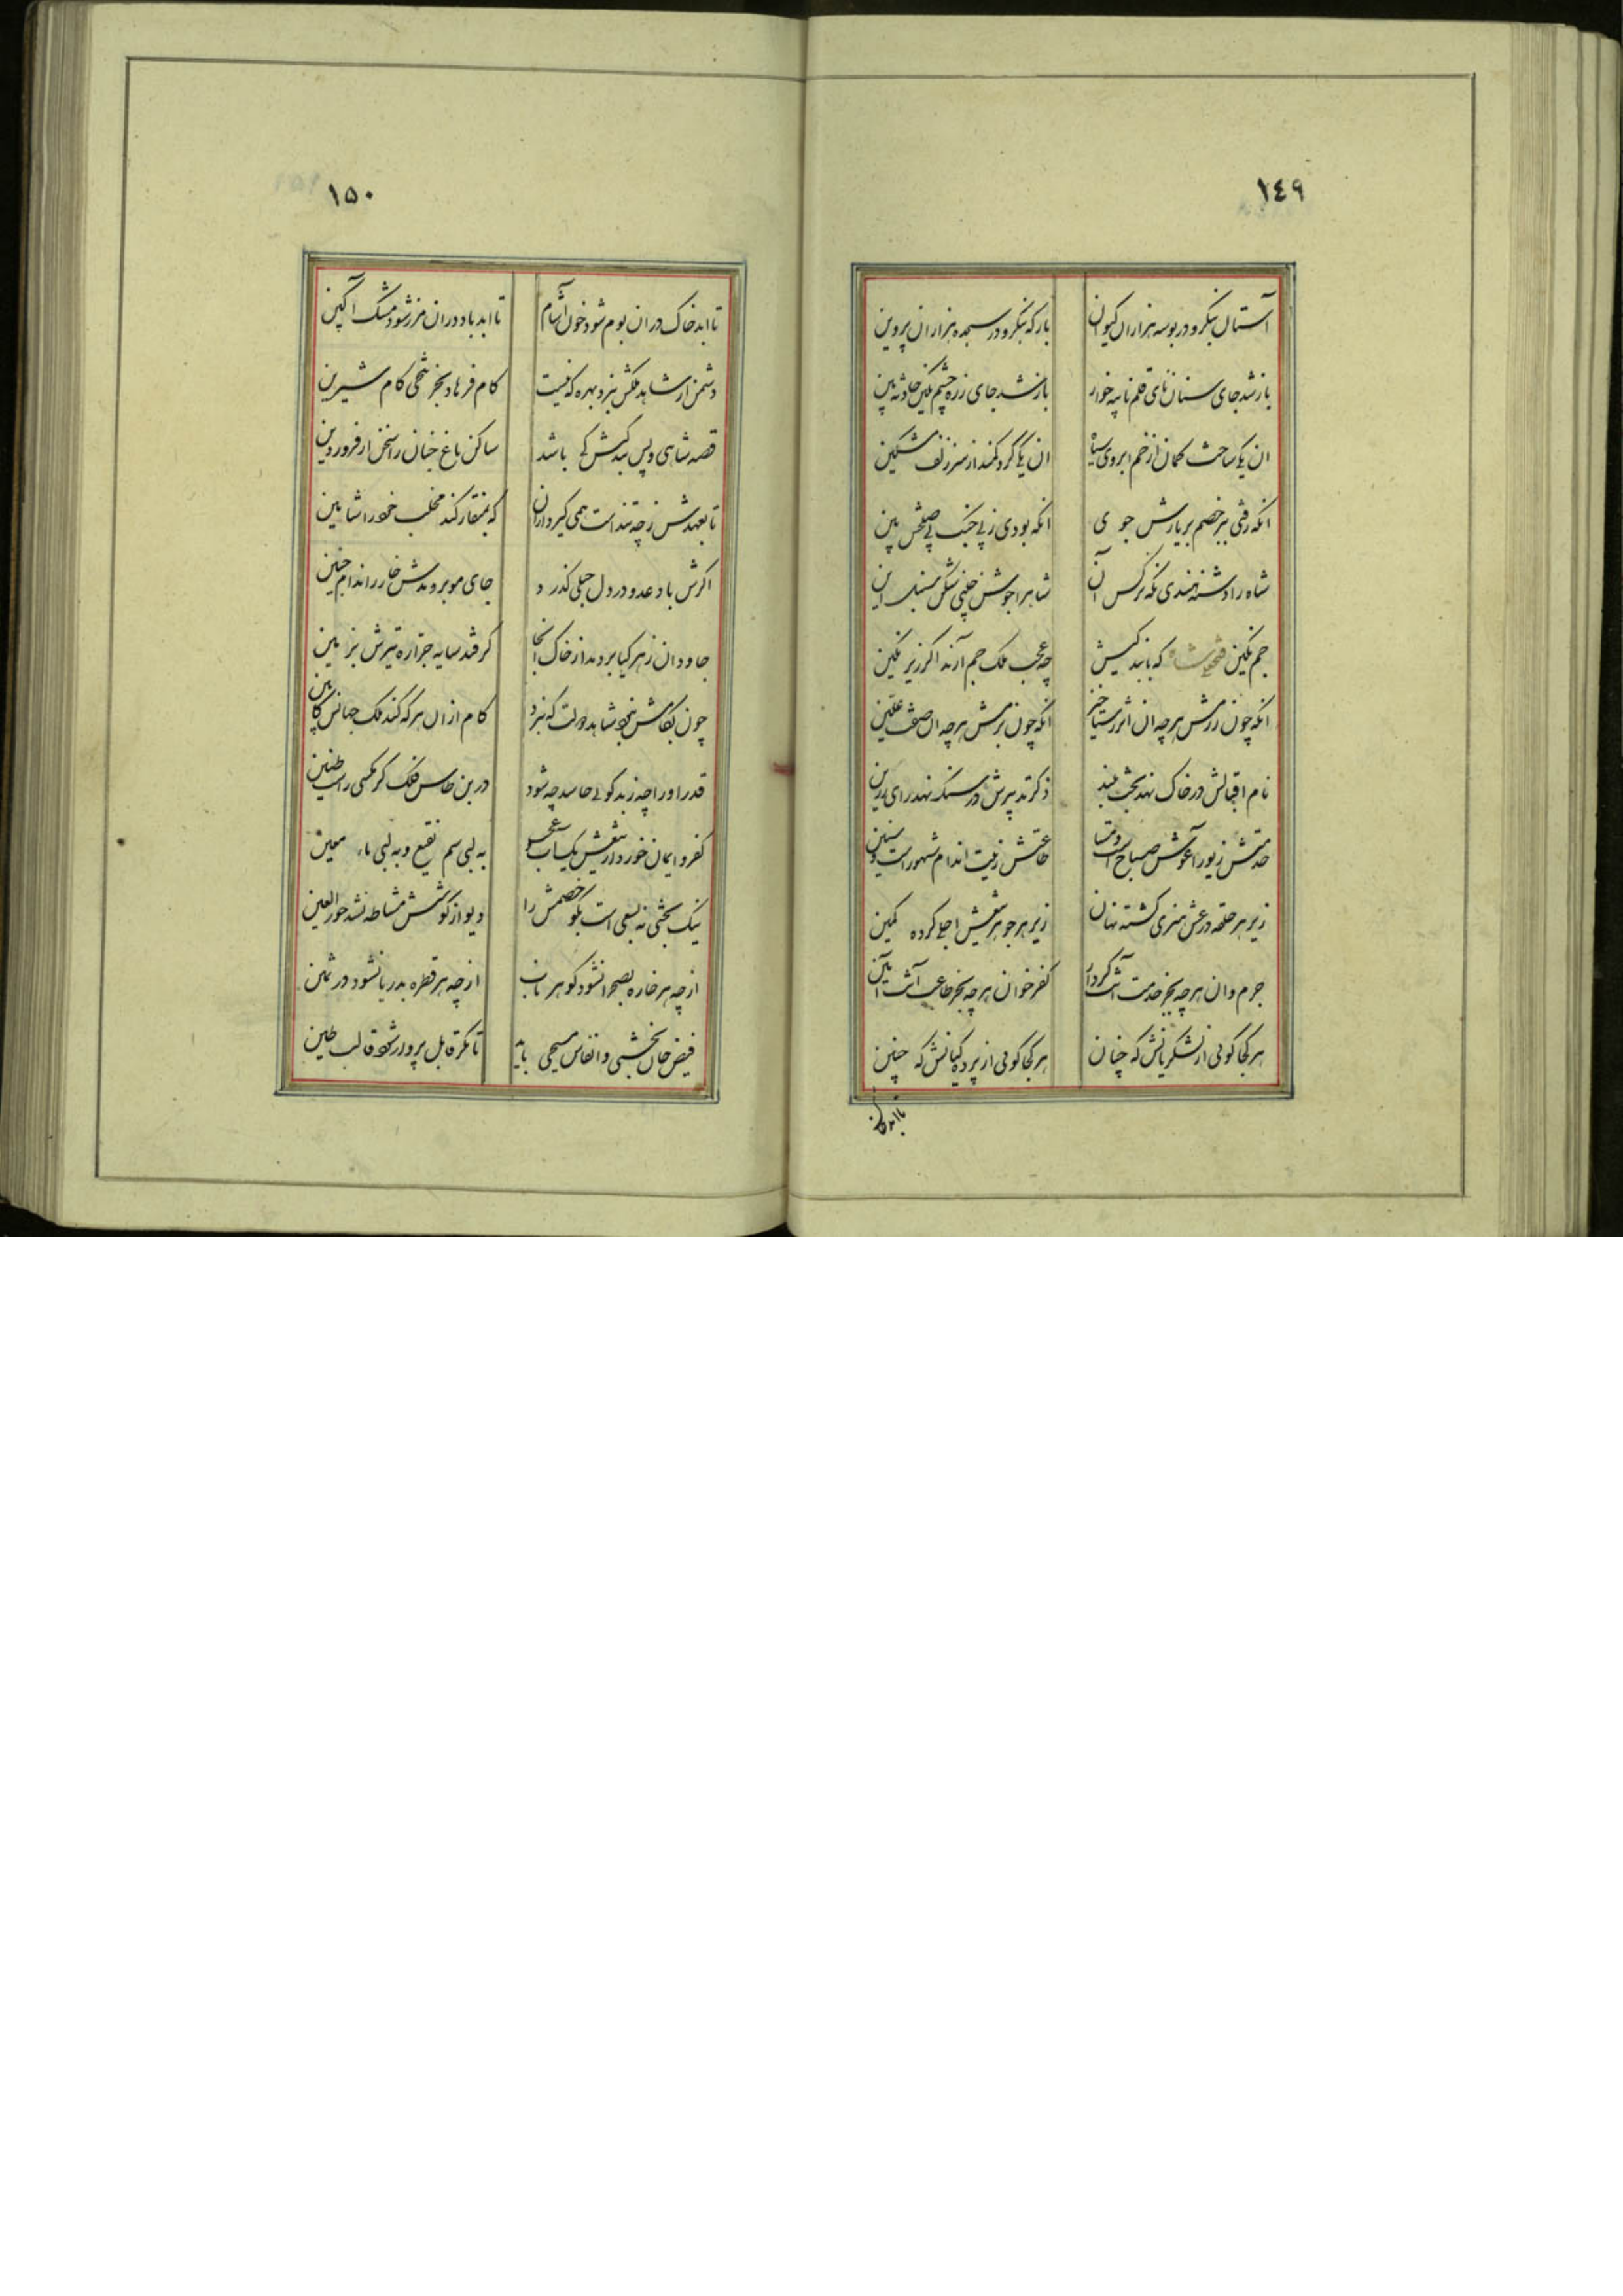 ١٤٩
آستان بنگر و در بوسه هزاران کیوان
بارکه بنگر و در سجده هزاران پروین
باز شد جای سنان نای قلم نامه
باز شد جای زره چشم
ان یکی ساخت کمان از خم ابروی سیاه
ان یکی کرد کمند از سر زلف مشکین
انکه رفتی بر خصم بر یارش جوی
انکه بودی ز پی جنک پی صلحش بین
شاه را دشنه هندی نکه نرکس آن
شاهرا جوشن سنبل این
جم نکین فتحعلی شاه که
چه عجب ملک جم آرند اکر زیر نکین
انکه چون رزمش هر چه ان اثر رستاخیز
انکه چون بزمش هر چه ان صفت علیین
نام اقبالش در خاک نهد بخت بلند
ذکر تدبیرش در سنک نهد رای رزین
خدمتش زیور آغوش صباح است و مسا
طاعتش زینت اندام شهور است و سنین
زیر هر حلقه درعش هنری کشته نهان
زیر هر جوهر تیغش اجلی کرده کمین
جرم دان هر چه بجز خدمت آتت کردار
کفر خوان هر چه بجز طاعت آتت آیین
هر کجا کوئی از لشکریانش که چنان
هر کجا کوئی از پردکیانش که چنین
تا ابد خاک
١۵٠
تا ابد خاک در ان بوم شود خون آشام
تا ابد باد در ان مرز شود مشک آکین
دشمن از شاهد ملکش نبرد بهره که نیست
کام فرهاد بجز تلخی کام شیرین
قصه شاهی و پس بندکیش کی باشد
ساکن باغ جنان را سخن از فروردین
تا بعهدش ز چه تند است همی کیر و دار ان
که بمنقار کند مخلب خود را شاهین
اکرش یاد عدو در دل جبلی کذرد
جای مو بر دمدش خار ز اندام جنین
جاودان زهر کیا بر دمد از خاک آنجا
کر فتد سایه جراره تیرش بزمین
چون بکامش نبود شاهد دولت که نبرد
کام از ان هر که کند ملک جهانش کابین
قدر او را چه ز بد کوئی حاسد چه شود
در بن طاس فلک کر مکسی راست طنین
کفر و ایمان خورد از تیغش یک آب
به لبی سم نقیع و به لبی ماء معین
نیک بختی نه بسعی است بکو خصمش را
دیو از کوشش مشاطه نشد حور العین
از چه هر خاره بصحرا نشود کوهر ناب
از چه هر قطره بدریا نشود در ثمین
فیض جان بخشی و انفاس مسیحی باید
تا مکر قابل پرواز شود قالب طین